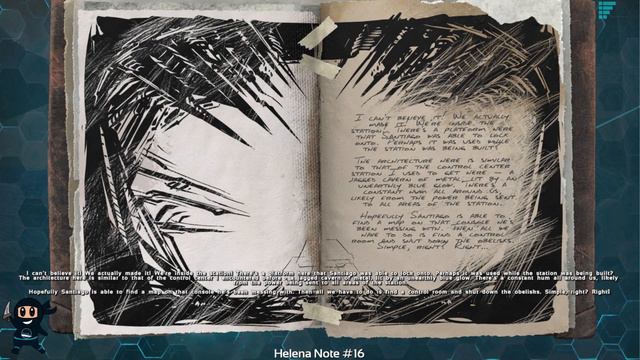 I can't believe it. We actually
made it! We're inside the
station. There's a platform here
that Santiago was able to lock
onto. Perhaps it was used while
the station was being built?
The architecture here is similar
to that of the control center
station I used to get here – a
jagged cavern of metal lit by an
unearthly blue glow. There's a
constant hum all around us,
likely from the power being sent
to all areas of the station.
Hopefully Santiago is able to
find a map on that console he's
been messing with. Then all we
have to do is find a control
room and shut down the obelisks.
Simple, right? Right...
I can't believe it! We actually made it! We're inside the station! There's a platform here that Santiago was able to lock onto. Perhaps it was used while the station was being built?
The architecture here is similar to that of the control center I encountered before - a jagged cavern of metal, lit by an unearthly blue glow. There's a constant hum all around us, likely
from the power being sent to all areas of the station.
Hopefully Santiago is able to find a map on that console he's been messing with. Then all we have to do is find a control room and shut down the obelisks. Simple, right? Right?
Helena Note #16